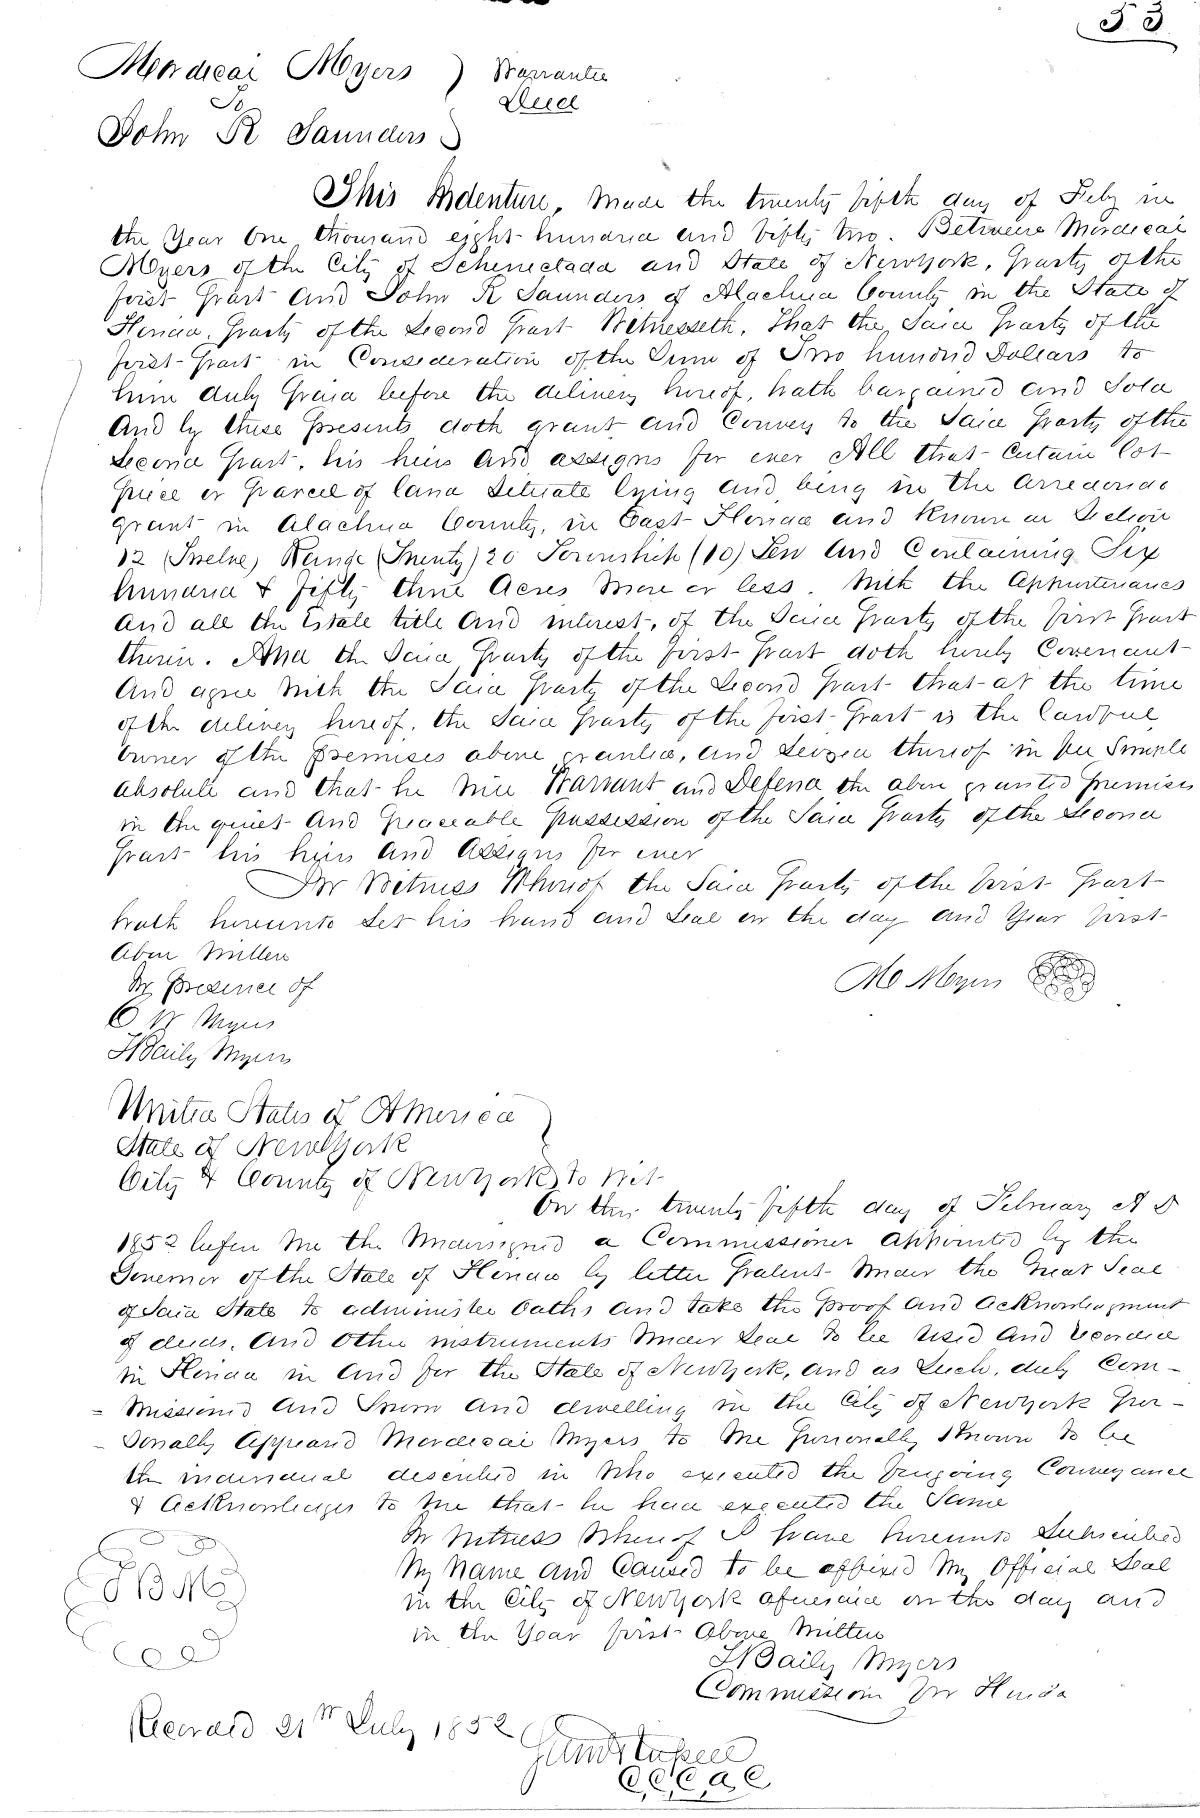 53
Mordicai Myers ) Warrantee
To Deed
John R Saunders )
This Indenture, Made the twenty fifth day of Feby in
the Year One thousand eight hundred and fifty two. Between Mordicai
Myers of the City of Schenectada and State of NewYork, Party of the
first Part and John R Saunders of Alachua County in the State of
Florida, Party of the Second Part Witnesseth, That the Said Party of the
first Part in Consideration of the Sum of Two hundred Dollars to
him duly Paid before the delivery hereof, hath bargained and Sold
And by these Presents doth grant and Convey to the Said Party of the
Second Part, his heirs and assigns for ever All that Certain lot
Piece or Parcel of land Situate lying and being in the Arredondo
grant in Alachua County, in East Florida and Known as Section
12 (Twelve) Range (Twenty) 20 Township (10) Ten and Containing Six
hundred & fifty three Acres More or less. With the Appurtenances
and all the Estate title and interest, of the Said Party of the first Part
therein. And the Said Party of the first Part doth hereby Covenant
And agree With the Said Party of the Second Part that at the time
of the delivery hereof, the Said Party of the first Part is the lawful
owner of the Premises above granted, and Seized thereof in fee Simple
absolute and that he Will Warrant and Defend the above granted Premises
in the quiet and Peaceable Possession of the Said Party of the Second
Part his heirs and Assigns for ever
In Witness Whereof the Said Party of the first Part
hath hereunto Set his hand and Seal on the day and Year first
Above Written
In Presence of M Myers
C W Myers
T Baily Myers
United States of America )
State of NewYork
City & County of NewYork ) to Wit
On this twenty fifth day of February A D
1852 before Me the Undersigned a Commissioner appointed by the
Governor of the State of Florida by letter Patent Under the Great Seal
of Said State to administer Oaths and take the Proof and Acknowledgment
of deeds, and other instruments Under Seal to be Used and recorded
in Florida in and for the State of NewYork, and as Such, duly Com-
= missioned and Sworn and dwelling in the City of NewYork Per-
- sonally Appeared Mordicai Myers to Me Personally Known to be
the individual described in Who executed the foregoing Conveyance
& Acknowledges to Me that he had executed the Same
In Witness Whereof I have hereunto Subscribed
My Name and Caused to be affixed My Official Seal
in the City of NewYork aforesaid on the day and
in the Year first Above Written
TBM
T Baily Myers
Commission for Florida
Recorded 21st July 1852
C, C, C, A, C